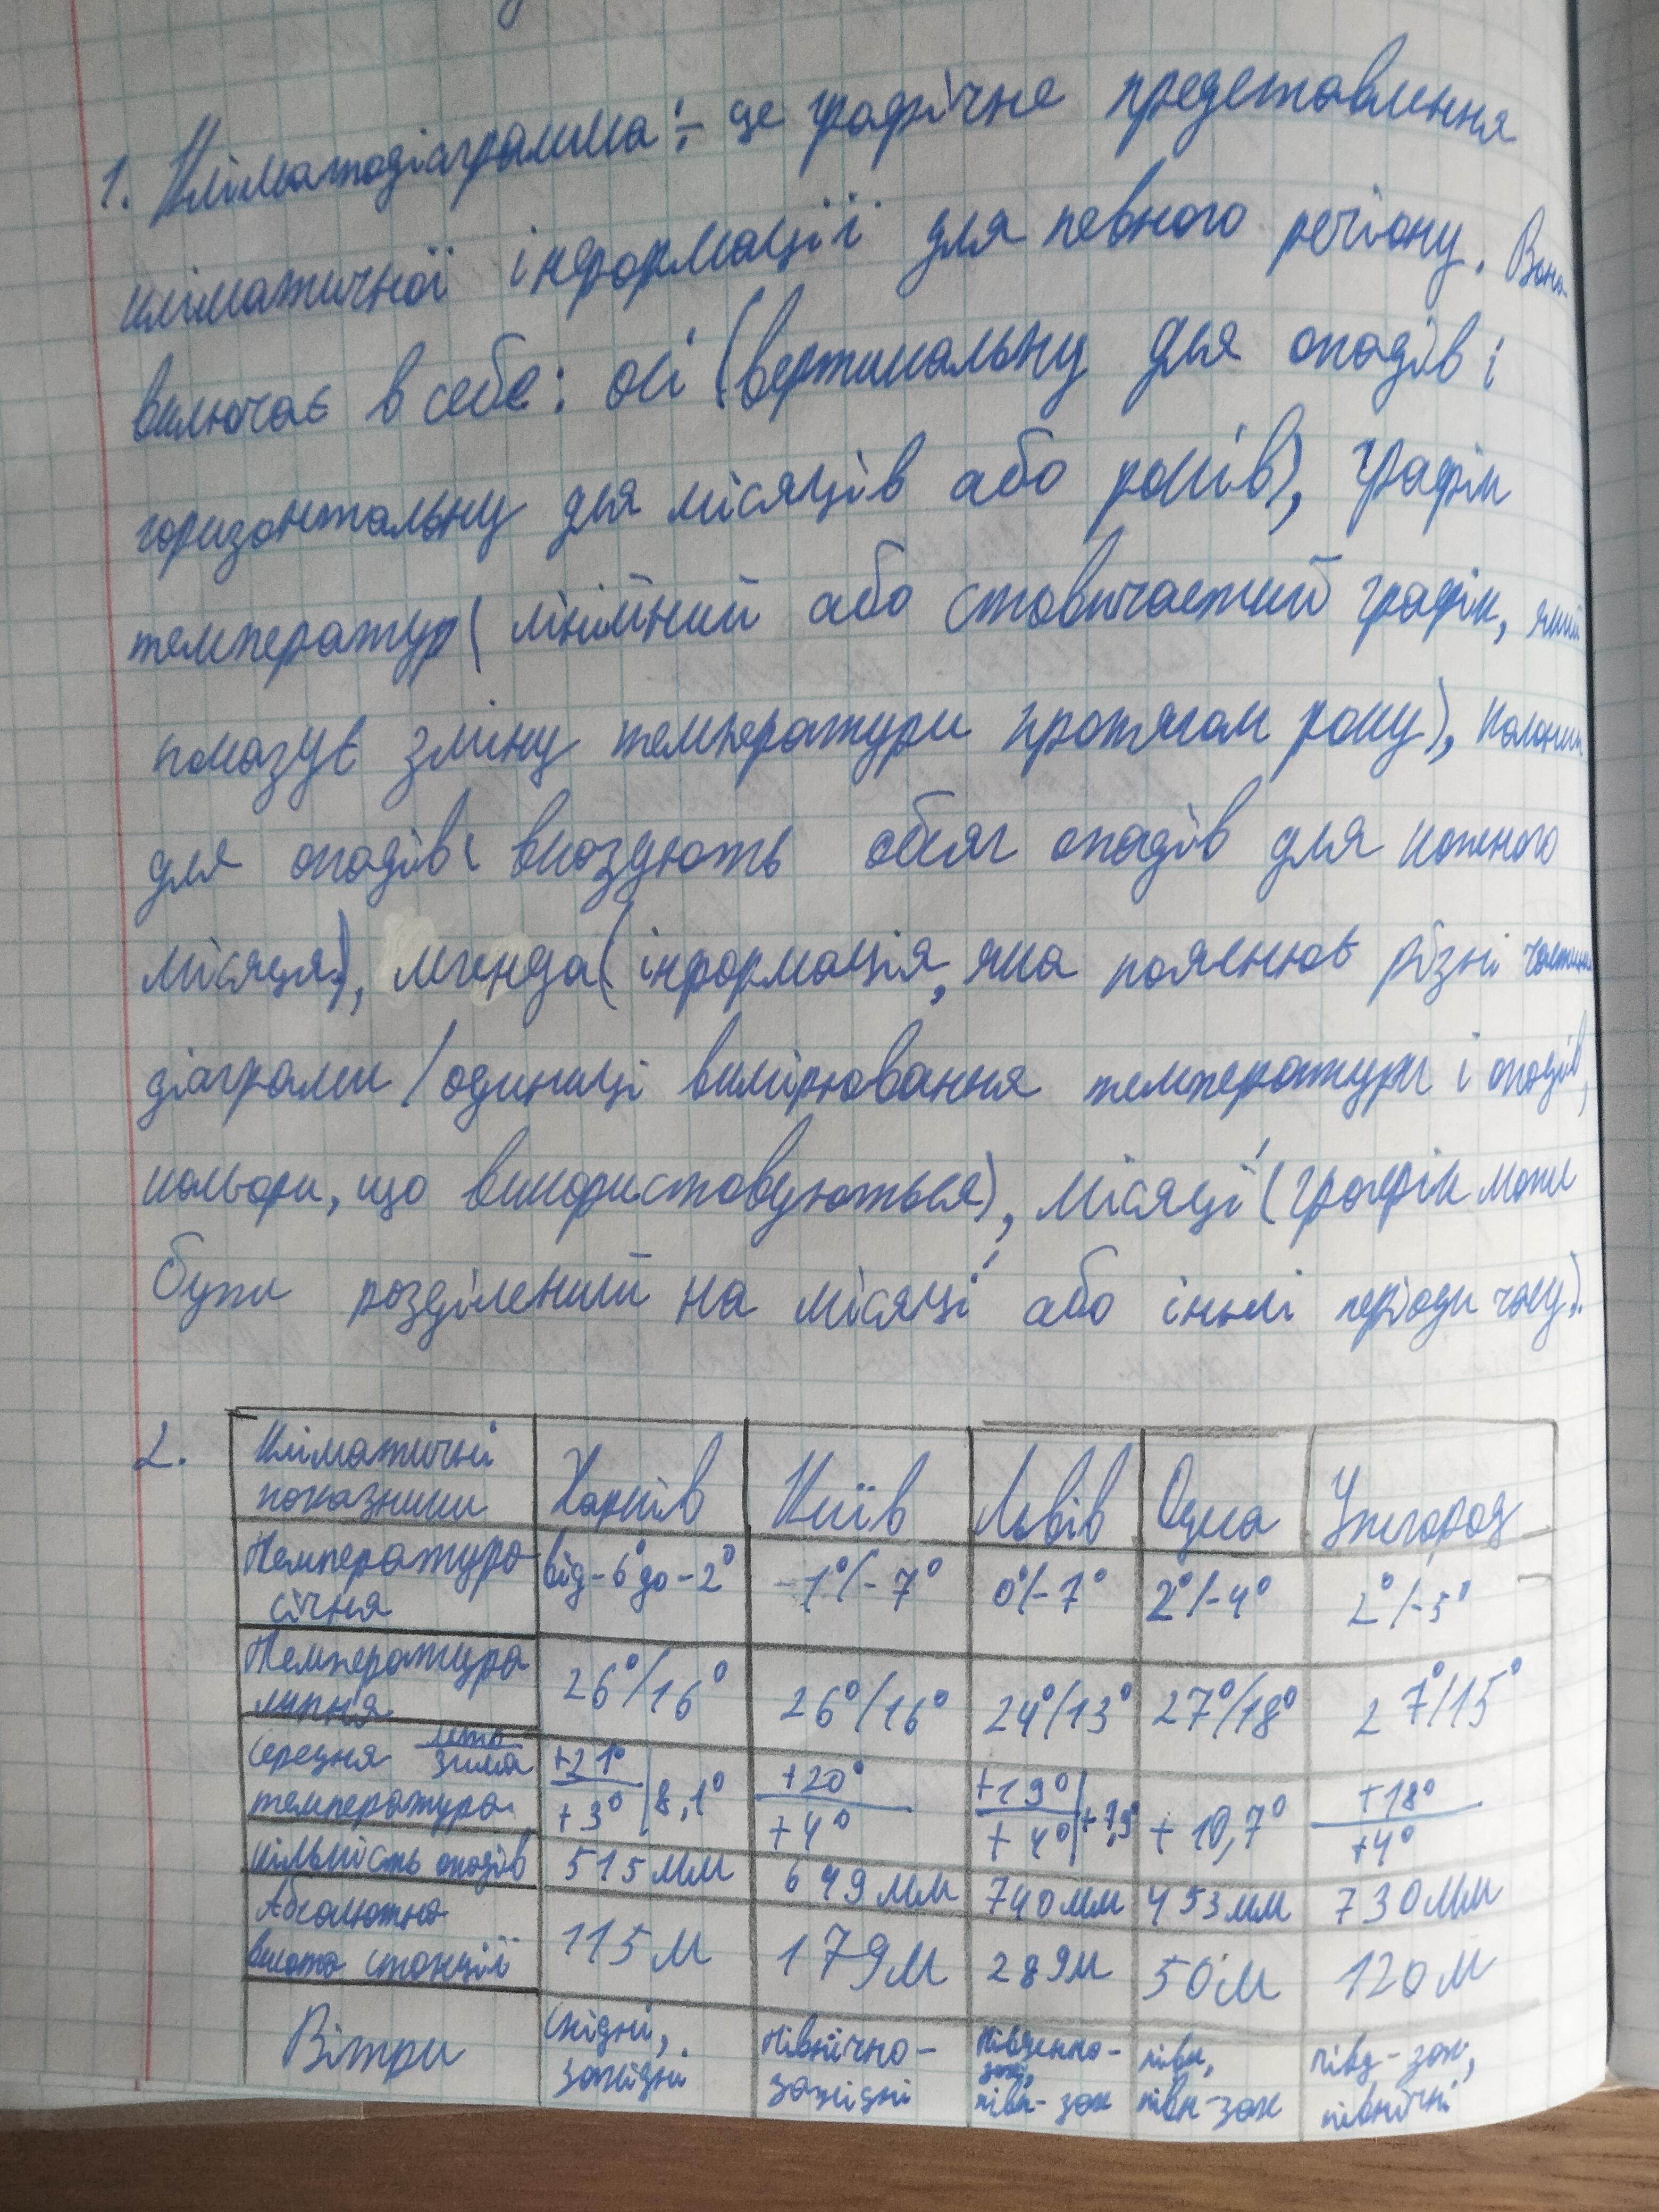 1. Кліматодіаграма:- це графічне представлення
кліматичної інформації для певного регіону. Вона
включає в себе: осі (вертикальну для опадів і
горизонтальну для місяців або років), графік
температур( лінійний або стовпчастий графік, який
показує зміну температури протягом року), колонки
для опадів( вказують обсяг опадів для кожного
місяця), легенда( інформація, яка пояснює різні частини
діаграми /одиниці вимірювання температури і опадів,
кольори, що використовуються), місяці (графік може
бути розділений на місяці або інші періоди часу).
2. Кліматичні показники Харків Київ Львів Одеса Ужгород
Температура січня від -6° до -2° -1°/-7° 0°/-7° 2°/-4° 2°/-5°
Температура липня 26°/16° 26°/16° 24°/13° 27°/18° 27°/15°
Середня літо/зима температура +21°/+3° | 8,1° +20°/+4° +19°/+4° | +7,9° +10,7° +18°/+4°
кількість опадів 515мм 649мм 740мм 453мм 730мм
Абсолютна висота станції 115м 179м 289м 50м 120м
Вітри Східні, західні північно-західні південно-зах, півн-зах півн, півн-зах півд-зах, північні